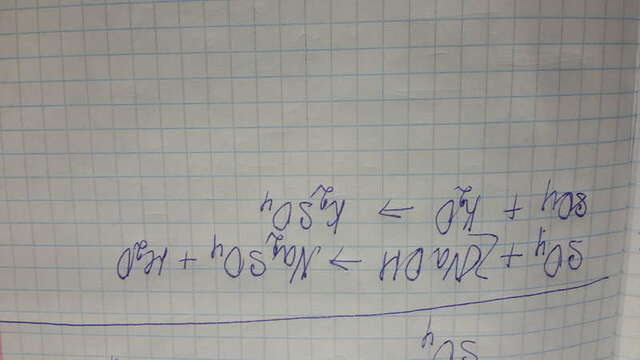 SO4
SO4 + 2NaOH → Na2SO4 + H2O
SO4 + K2O → K2SO4